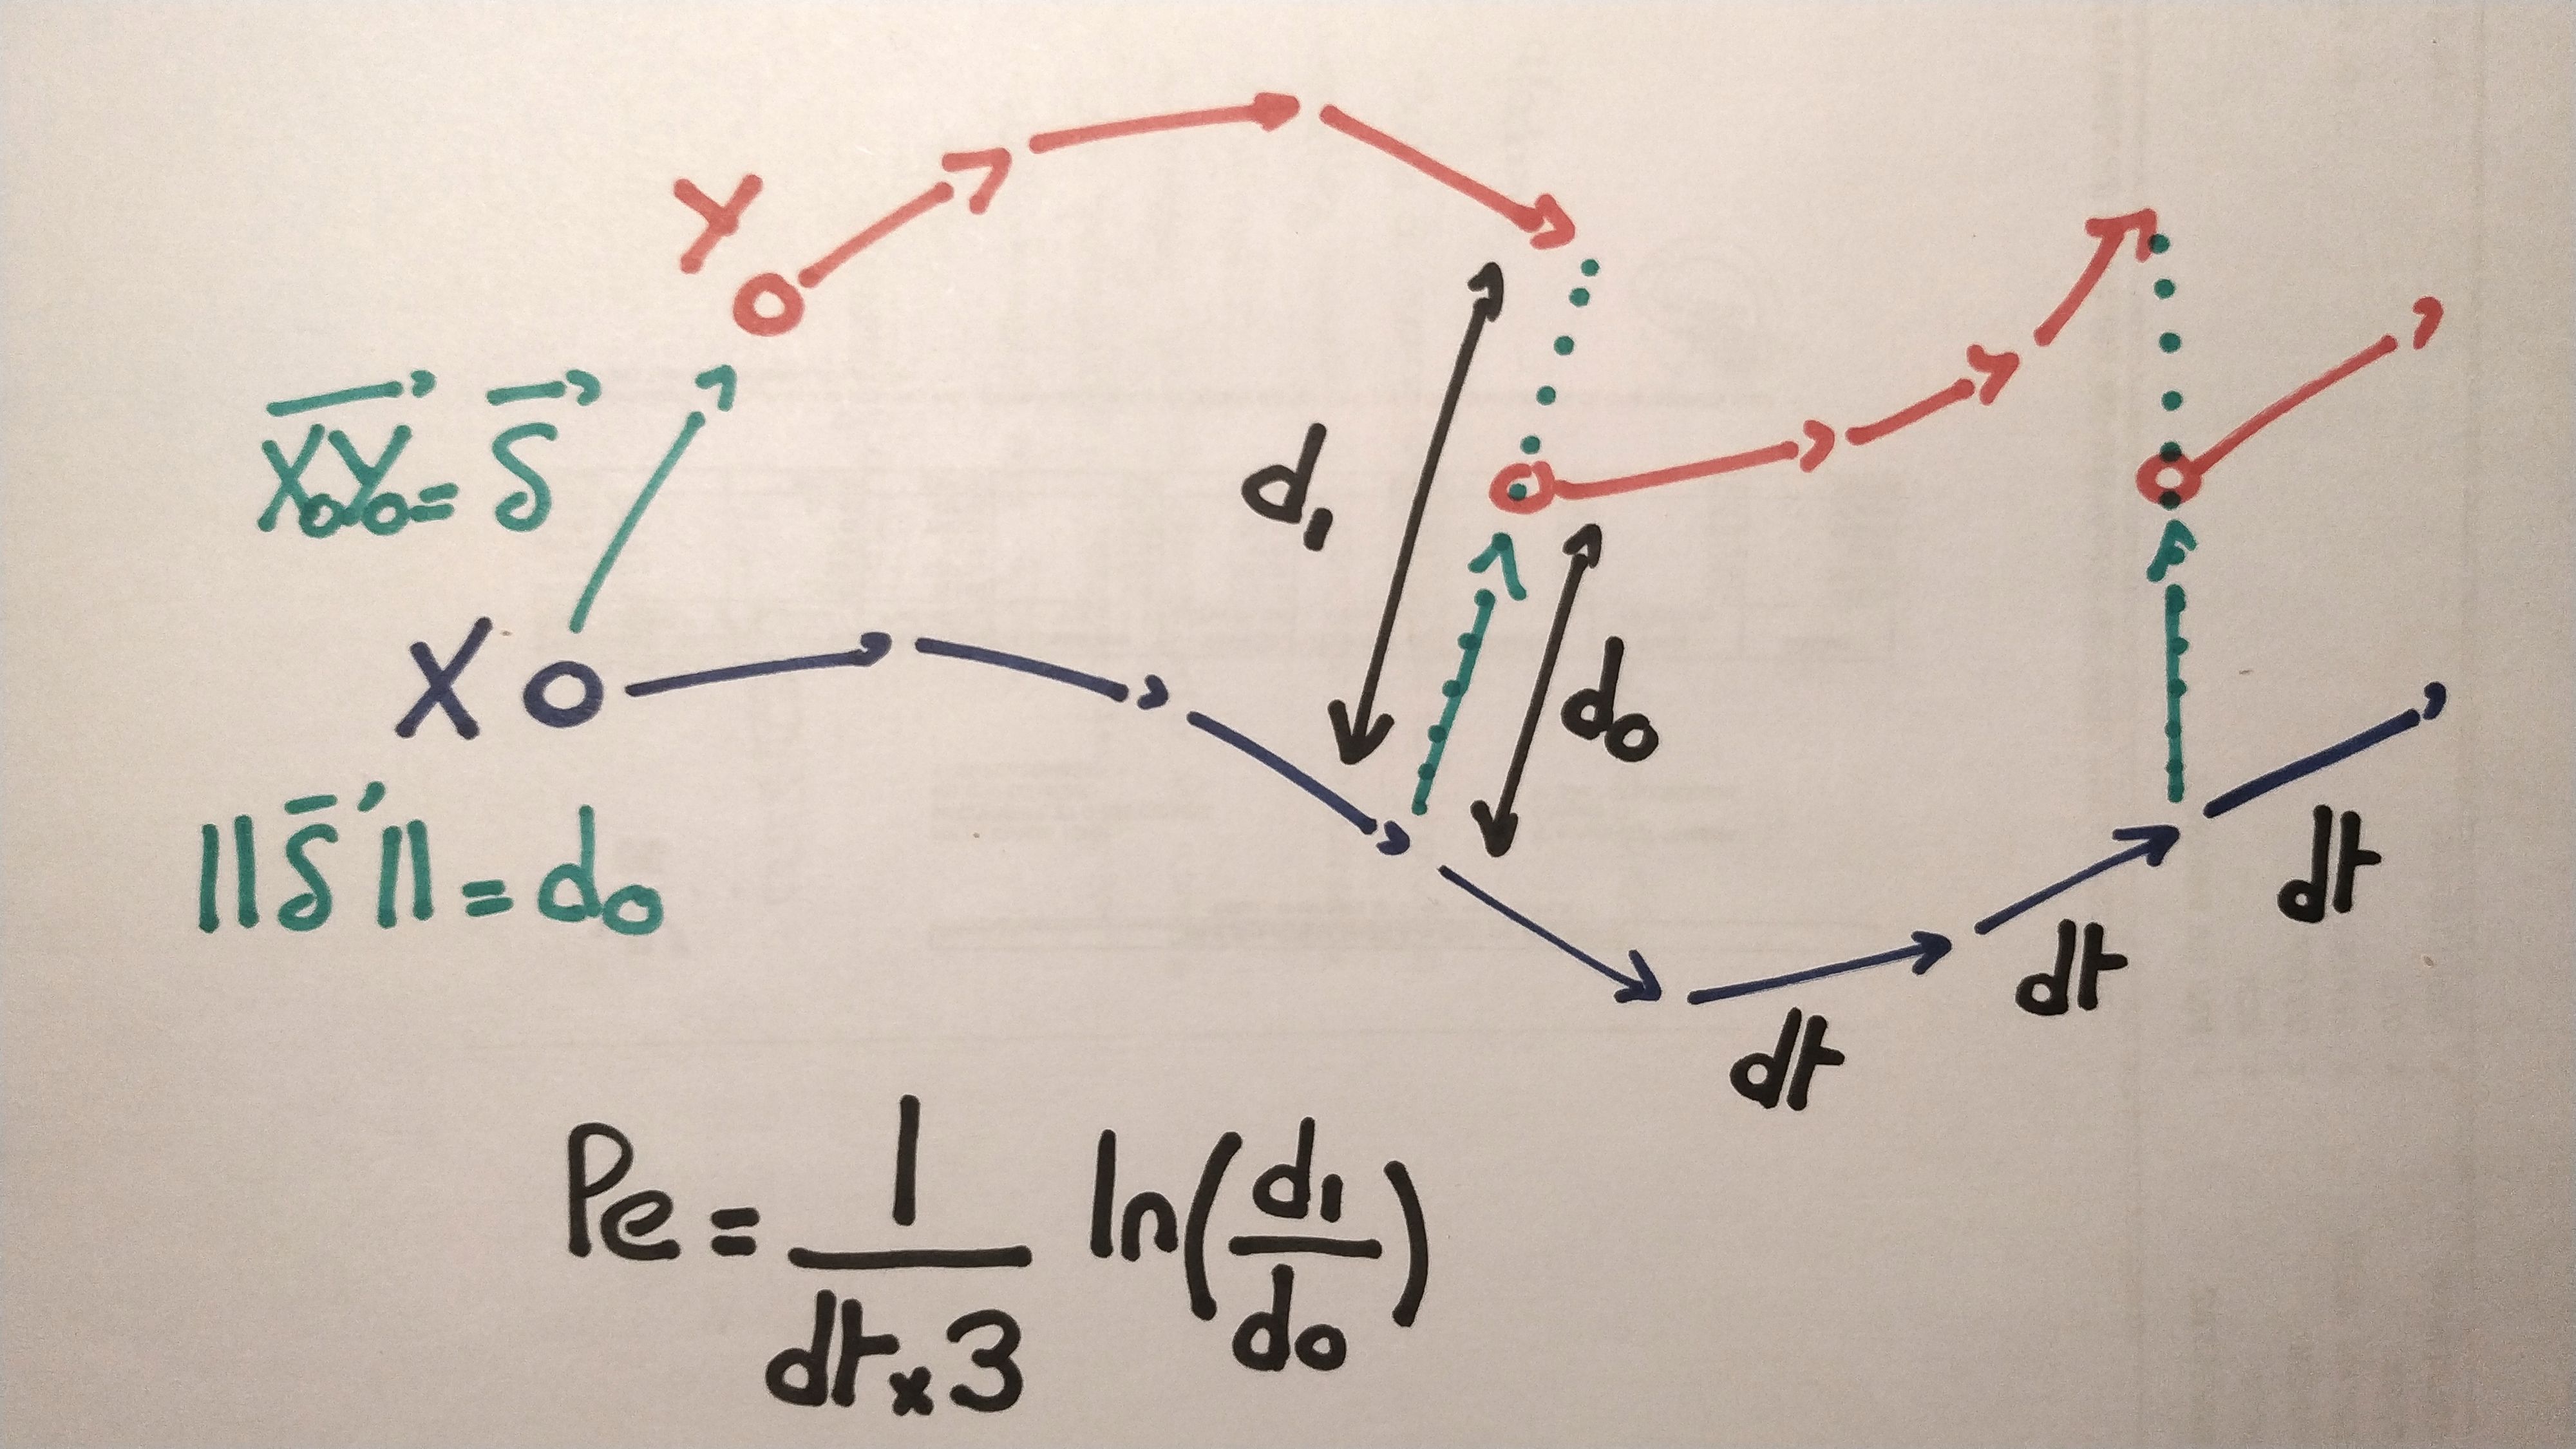 Y
X₀Y₀ = δ
d₁
X
d₀
||δ|| = d₀
dt
dt
dt
Pe = 1 / (dt x 3) ln(d₁/d₀)